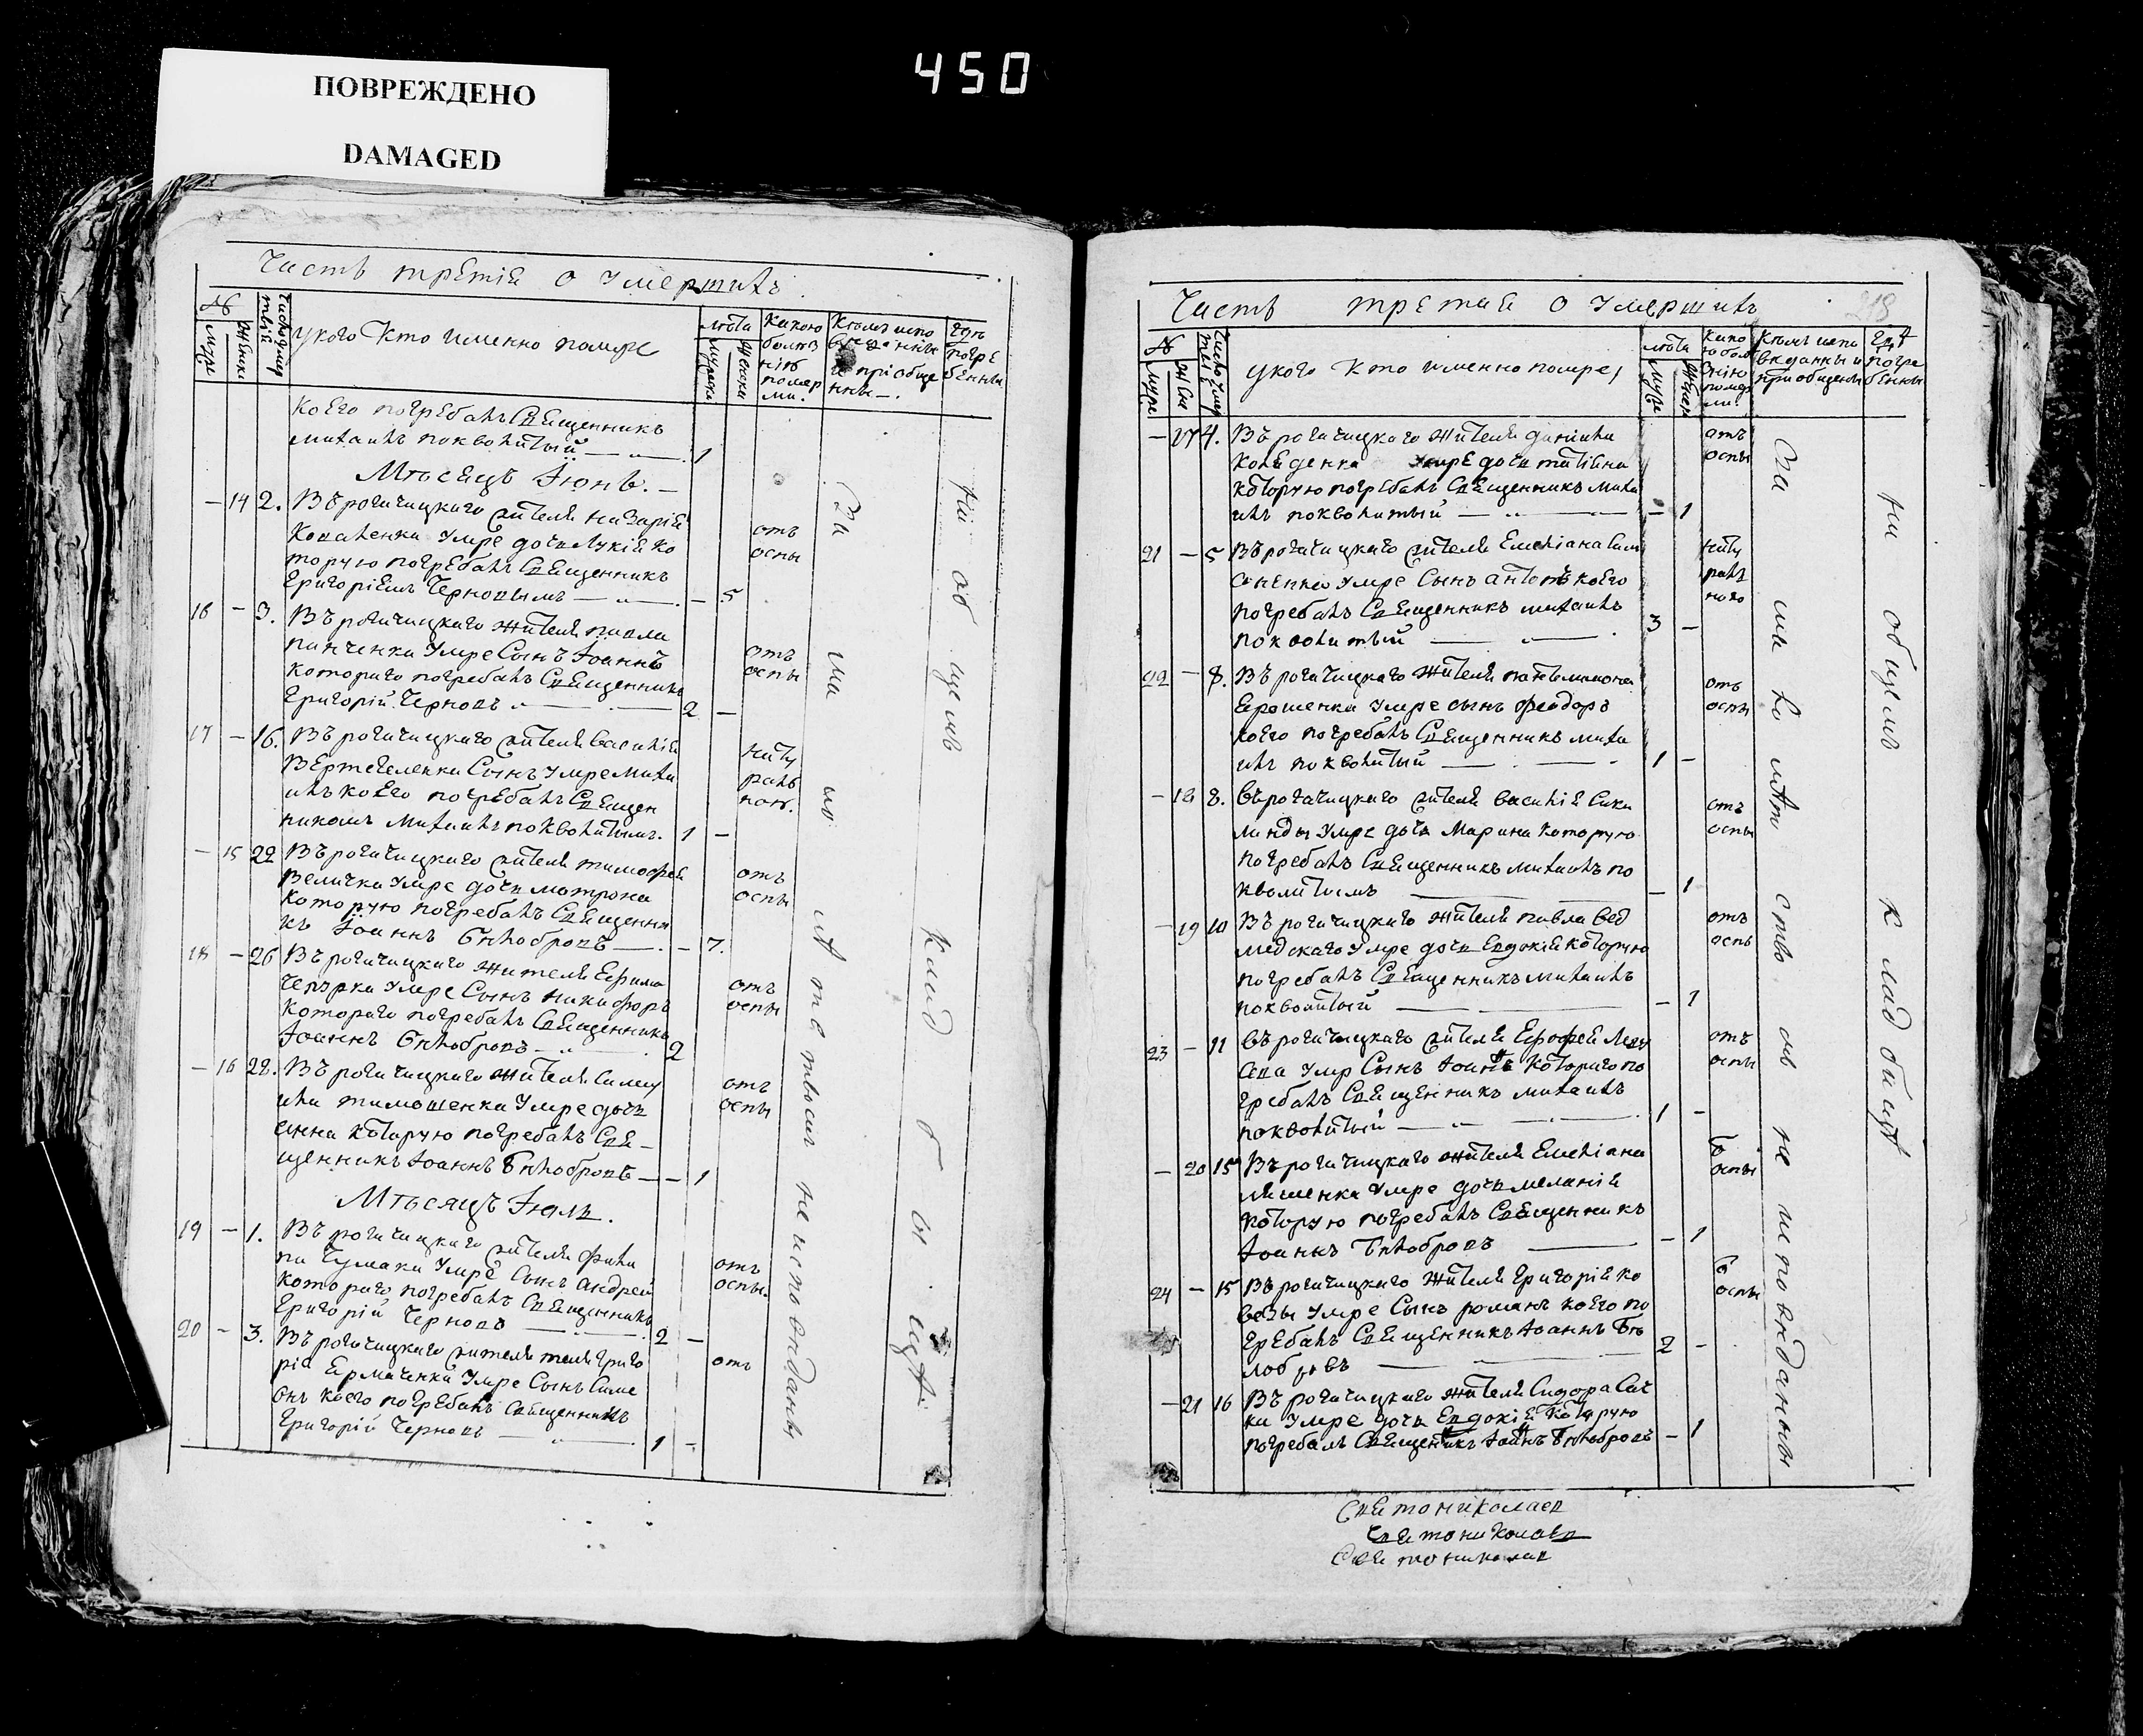 450
ПОВРЕЖДЕНО
DAMAGED
Часть третія о умершихъ
№
Муре
Женск
у кого кто именно помре
лѣта
Мужеска
Женска
Какою
болез
нію
помер
ли.
Кѣмъ испо
и приобще
нны —.
Гдѣ
погре
бенны
коего погребалъ Священникъ
Михаилъ Поквалитый — 1
Мѣсецъ Іюнь. —
— 14 2. Въ рогачицкаго жителя Назарія
Коваленка умре дочь Лукія ко
торую погребалъ Священникъ
Григоріемъ Черновымъ — — 5
отъ
оспы
16 — 3. Въ рогачицкаго жителя Павла
Панченка умре Сынъ Іоаннъ
котораго погребалъ Священникъ
Григорій Черновъ — 2 —
отъ
оспы
17 — 16. Въ рогачицкаго жителя Василія
Сынъ умре Миха
илъ коего погребалъ Священ
никомъ Михаилъ Поквалитымъ. 1 —
нату
раль
ною.
— 15 22 Въ рогачицкаго жителя Тимофея
Величка умре дочь Матрона
которую погребалъ Священни
къ Іоаннъ Белобровъ — — 7.
отъ
оспы
18 — 26 Въ рогачицкаго жителя Ефима
умре Сынъ Никифоръ
котораго погребалъ Священникъ
Іоаннъ Белобровъ — 2
отъ
оспы
— 16 28. Въ рогачицкаго жителя Саму
ила Тимошенка умре дочь
Анна которую погребалъ Свя—
щенникъ Іоаннъ Белобровъ — — 1
отъ
оспы
Мѣсяцъ Іюль.
19 — 1. Въ рогачицкаго жителя Фили
па Чумака умре Сынъ Андрей
котораго погребалъ Священникъ
Григорій Черновъ — 2 —
отъ
оспы.
20 — 3. Въ рогачицкаго жителя Григо
рія Ермаченка умре Сынъ Симе
онъ коего погребалъ Священникъ
Григорій Черновъ — 1 —
отъ
За малолѣтствомъ не исповѣданы
На общемъ кладбищѣ
Часть третая о умершихъ
218
№
Муре
у кого кто именно помре,
лѣта
Муже
Женск
Како
ю бол
ѣзнію
помер
ли.
Кѣмъ испо
веданны и
приобщены
Гдѣ
погре
бенны
— 17 4. Въ рогачицкаго жителя Даніила
умре дочь Татіана
которую погребалъ Священникъ Миха
илъ Поквалитый — — 1
отъ
оспы
21 — 5 Въ рогачицкаго жителя Емеліана Сам
соненка умре Сынъ Антонъ коего
погребалъ Священникъ Михаилъ
Поквалитый — 3 —
нату
рал
ною
22 — 8. Въ рогачицкаго жителя Пантелимона
Ерошенка умре сынъ Феодоръ
коего погребалъ Священникъ Миха
илъ Поквалитый — 1 —
отъ
оспы
— 18 8. Въ рогачицкаго жителя Василія Сала
манды умре дочь Марина которую
погребалъ Священникъ Михаилъ По
квалитымъ — 1
отъ
оспы
— 19 10 Въ рогачицкаго жителя Павла Вед
медскаго умре дочь Евдокія которую
погребалъ Священникъ Михаилъ
Поквалитый — — 1
отъ
оспы
23 — 11 Въ рогачицкаго жителя Ерофея
умре Сынъ Іоаннъ котораго по
гребалъ Священникъ Михаилъ
Поквалитый — 1 —
отъ
оспы
— 20 15 Въ рогачицкаго жителя Емеліана
умре дочь Меланія
которую погребалъ Священникъ
Іоаннъ Белобровъ — — 1
оспы
24 — 15 Въ рогачицкаго жителя Григорія Ко
взы умре Сынъ Романъ коего по
гребалъ Священникъ Іоаннъ Бе
лобровъ — 2 —
оспы
— 21 16 Въ рогачицкаго жителя Сидора
умре дочь Евдокія которую
погребалъ Священникъ Іоаннъ Белобровъ — 1
За малолѣтствомъ не исповѣданны
На общемъ кладбищѣ
Святониколаев
Святониколаев
Святониколаев